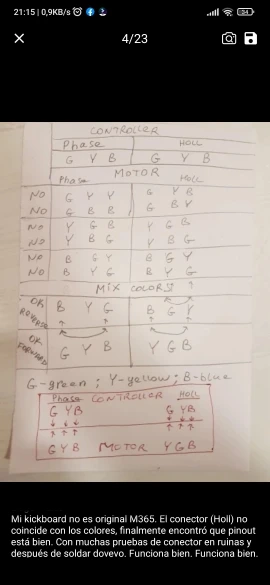 21:15 | 0,9KB/s
54
4/23
CONTROLLER
Phase HOLL
G Y B G Y B
MOTOR
Phase HOLL
NO G Y Y G Y B
NO G B B G B Y
NO Y G B Y G B
NO Y B G Y B G
NO B G Y B G Y
NO B Y G B Y G
MIX COLORS
OK REVERSE B Y G B G Y
OK FORWARD G Y B Y G B
G-green ; Y-yellow ; B-blue
Phase CONTROLLER HOLL
G Y B G Y B
G Y B MOTOR Y G B
Mi kickboard no es original M365. El conector (Holl) no
coincide con los colores, finalmente encontró que pinout
está bien. Con muchas pruebas de conector en ruinas y
después de soldar dovevo. Funciona bien. Funciona bien.